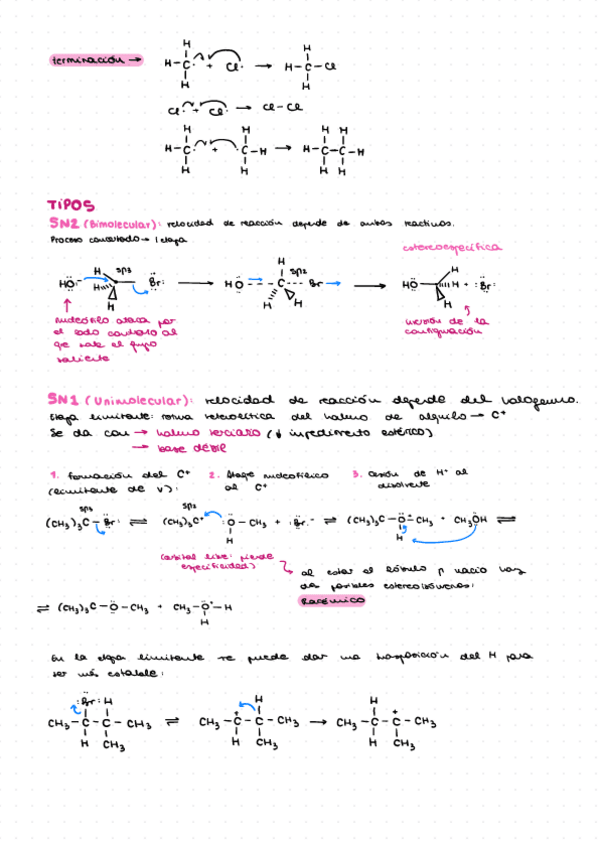 terminación →
H
H-C· + Cl· → H-C-Cl
H
Cl· + Cl· → Cl-Cl
H H H H
H-C· + ·C-H → H-C-C-H
H H H H
TIPOS
SN2 (Bimolecular): velocidad de reacción depende de ambos reactivos.
Proceso concertado → 1 etapa
estereoespecífica
sp3
sp2
HO:⁻ H H H Br: → HO --- C --- Br → HO H H + :Br:
Nucleófilo ataca por
el lado contrario al
que sale el grupo
saliente
inversión de la
configuración
SN1 (Unimolecular): velocidad de reacción depende del halogenuro.
Etapa limitante: rotura heterolítica del haluro de alquilo → C⁺
Se da con → haluro terciario (↓ impedimento estérico)
→ base débil
1. Formación del C⁺ 2. Ataque nucleofílico 3. Cesión de H⁺ al
(limitante de v): al C⁺ disolvente
sp3 sp2
(CH₃)₃C-Br: ⇌ (CH₃)₃C⁺ :O-CH₃ + :Br:⁻ ⇌ (CH₃)₃C-O⁺-CH₃ + CH₃OH ⇌
H H
(orbital libre: pierde
especificidad)
al estar el lóbulo p vacío hay
dos posibles estereoisómeros:
Racémico
⇌ (CH₃)₃C-O-CH₃ + CH₃-O⁺-H
H
En la etapa limitante se puede dar una transposición del H para
ser más estable:
:Br: H H H
CH₃-C-C-CH₃ ⇌ CH₃-C⁺-C-CH₃ → CH₃-C-C⁺-CH₃
H CH₃ H CH₃ H CH₃